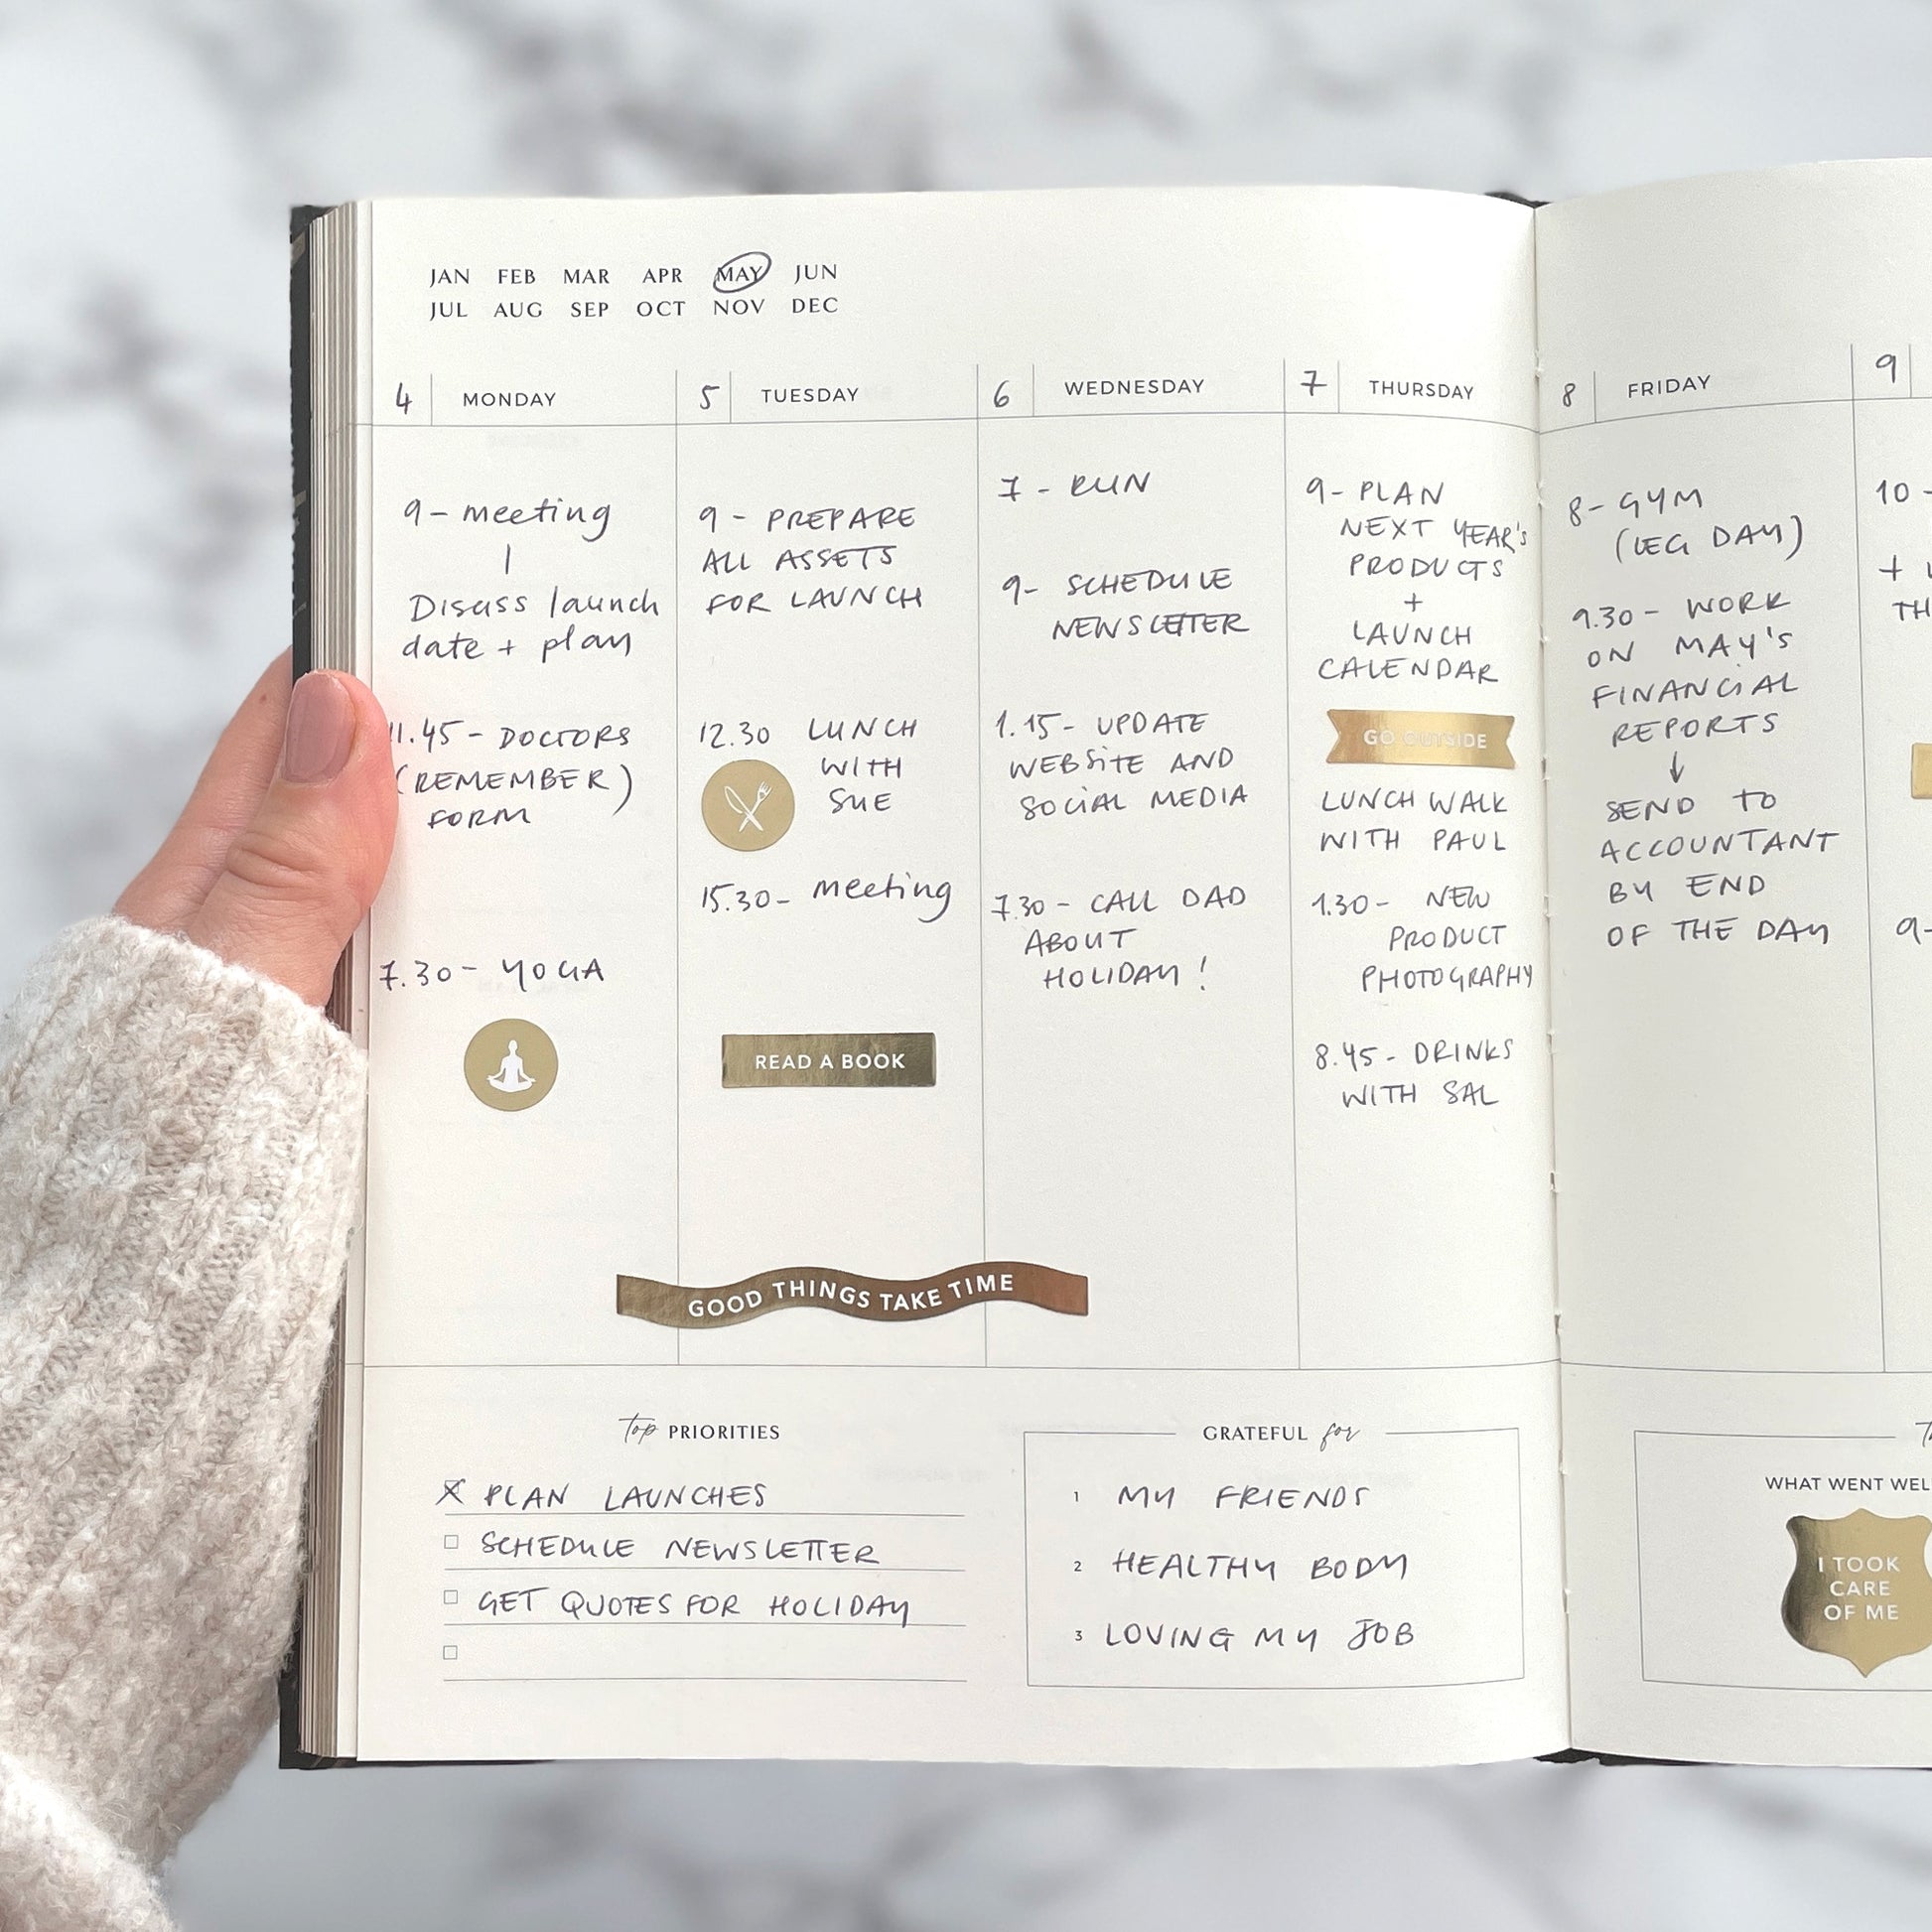 JAN FEB MAR APR MAY JUN
JUL AUG SEP OCT NOV DEC
4 MONDAY
9 - meeting
Disuss launch
date + plan
11.45 - DOCTORS
(REMEMBER)
FORM
7.30 - YOGA
5 TUESDAY
9 - PREPARE
ALL ASSETS
FOR LAUNCH
12.30 LUNCH
WITH
SUE
15.30 - meeting
READ A BOOK
6 WEDNESDAY
7 - RUN
9 - SCHEDULE
NEWSLETTER
1.15 - UPDATE
WEBSITE AND
SOCIAL MEDIA
7.30 - CALL DAD
ABOUT
HOLIDAY!
GOOD THINGS TAKE TIME
7 THURSDAY
9 - PLAN
NEXT YEAR'S
PRODUCTS
+
LAUNCH
CALENDAR
GO OUTSIDE
LUNCH WALK
WITH PAUL
1.30 - NEW
PRODUCT
PHOTOGRAPHY
8.45 - DRINKS
WITH SAL
8 FRIDAY
8 - GYM
(LEG DAY)
9.30 - WORK
ON MAY'S
FINANCIAL
REPORTS
↓
SEND TO
ACCOUNTANT
BY END
OF THE DAY
9
10 -
+
TH
9 -
top PRIORITIES
PLAN LAUNCHES
SCHEDULE NEWSLETTER
GET QUOTES FOR HOLIDAY
GRATEFUL for
1 MY FRIENDS
2 HEALTHY BODY
3 LOVING MY JOB
WHAT WENT WEL
I TOOK
CARE
OF ME